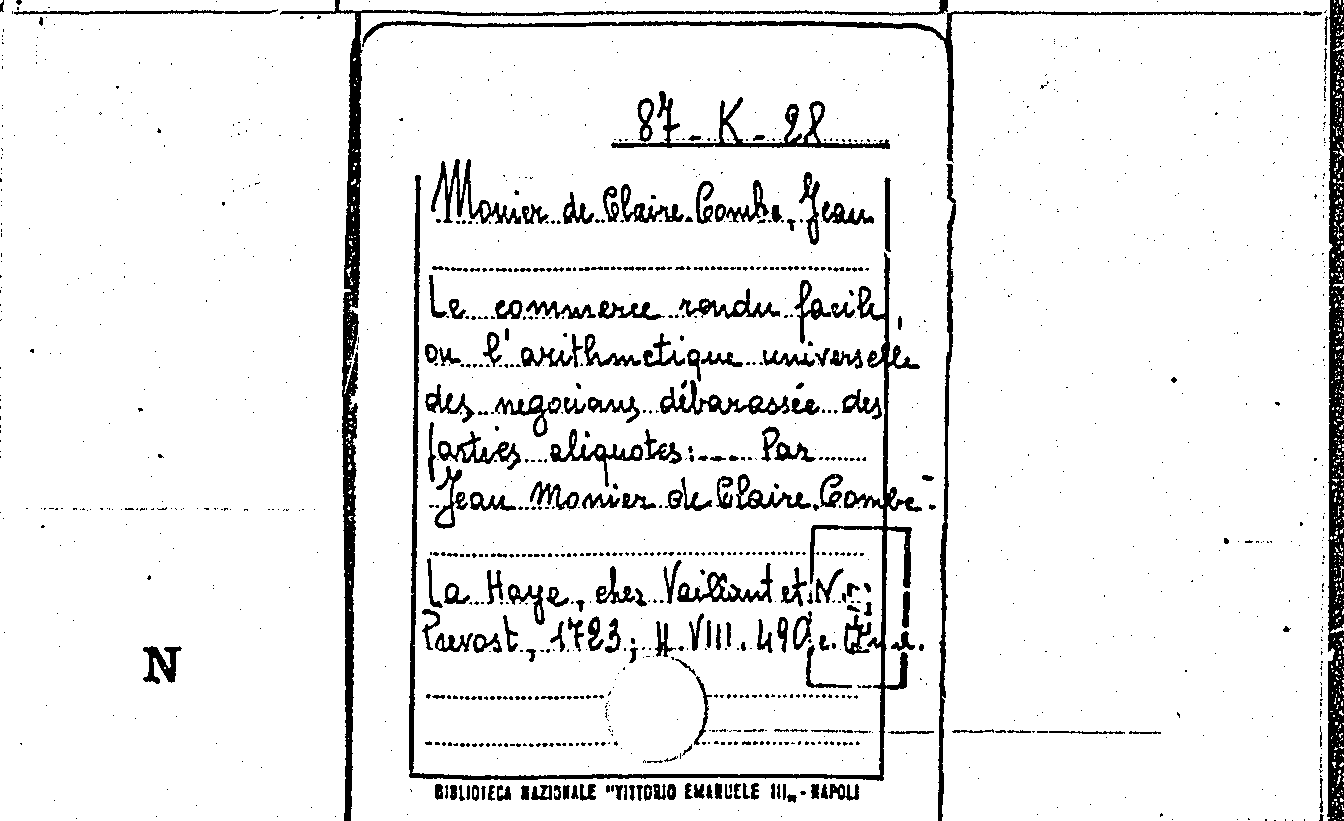 87-K-28
Monier de Claire-Combe, Jean
Le commerce rendu facile,
ou l'arithmetique universelle
des negocians débarassée des
parties aliquotes:... Par
Jean Monier de Claire-Combe.-
La Haye, chez Vaillant et N.
Prevost, 1723; 4. VIII. 490.
N
BIBLIOTECA NAZIONALE "VITTORIO EMANUELE III„ - NAPOLI